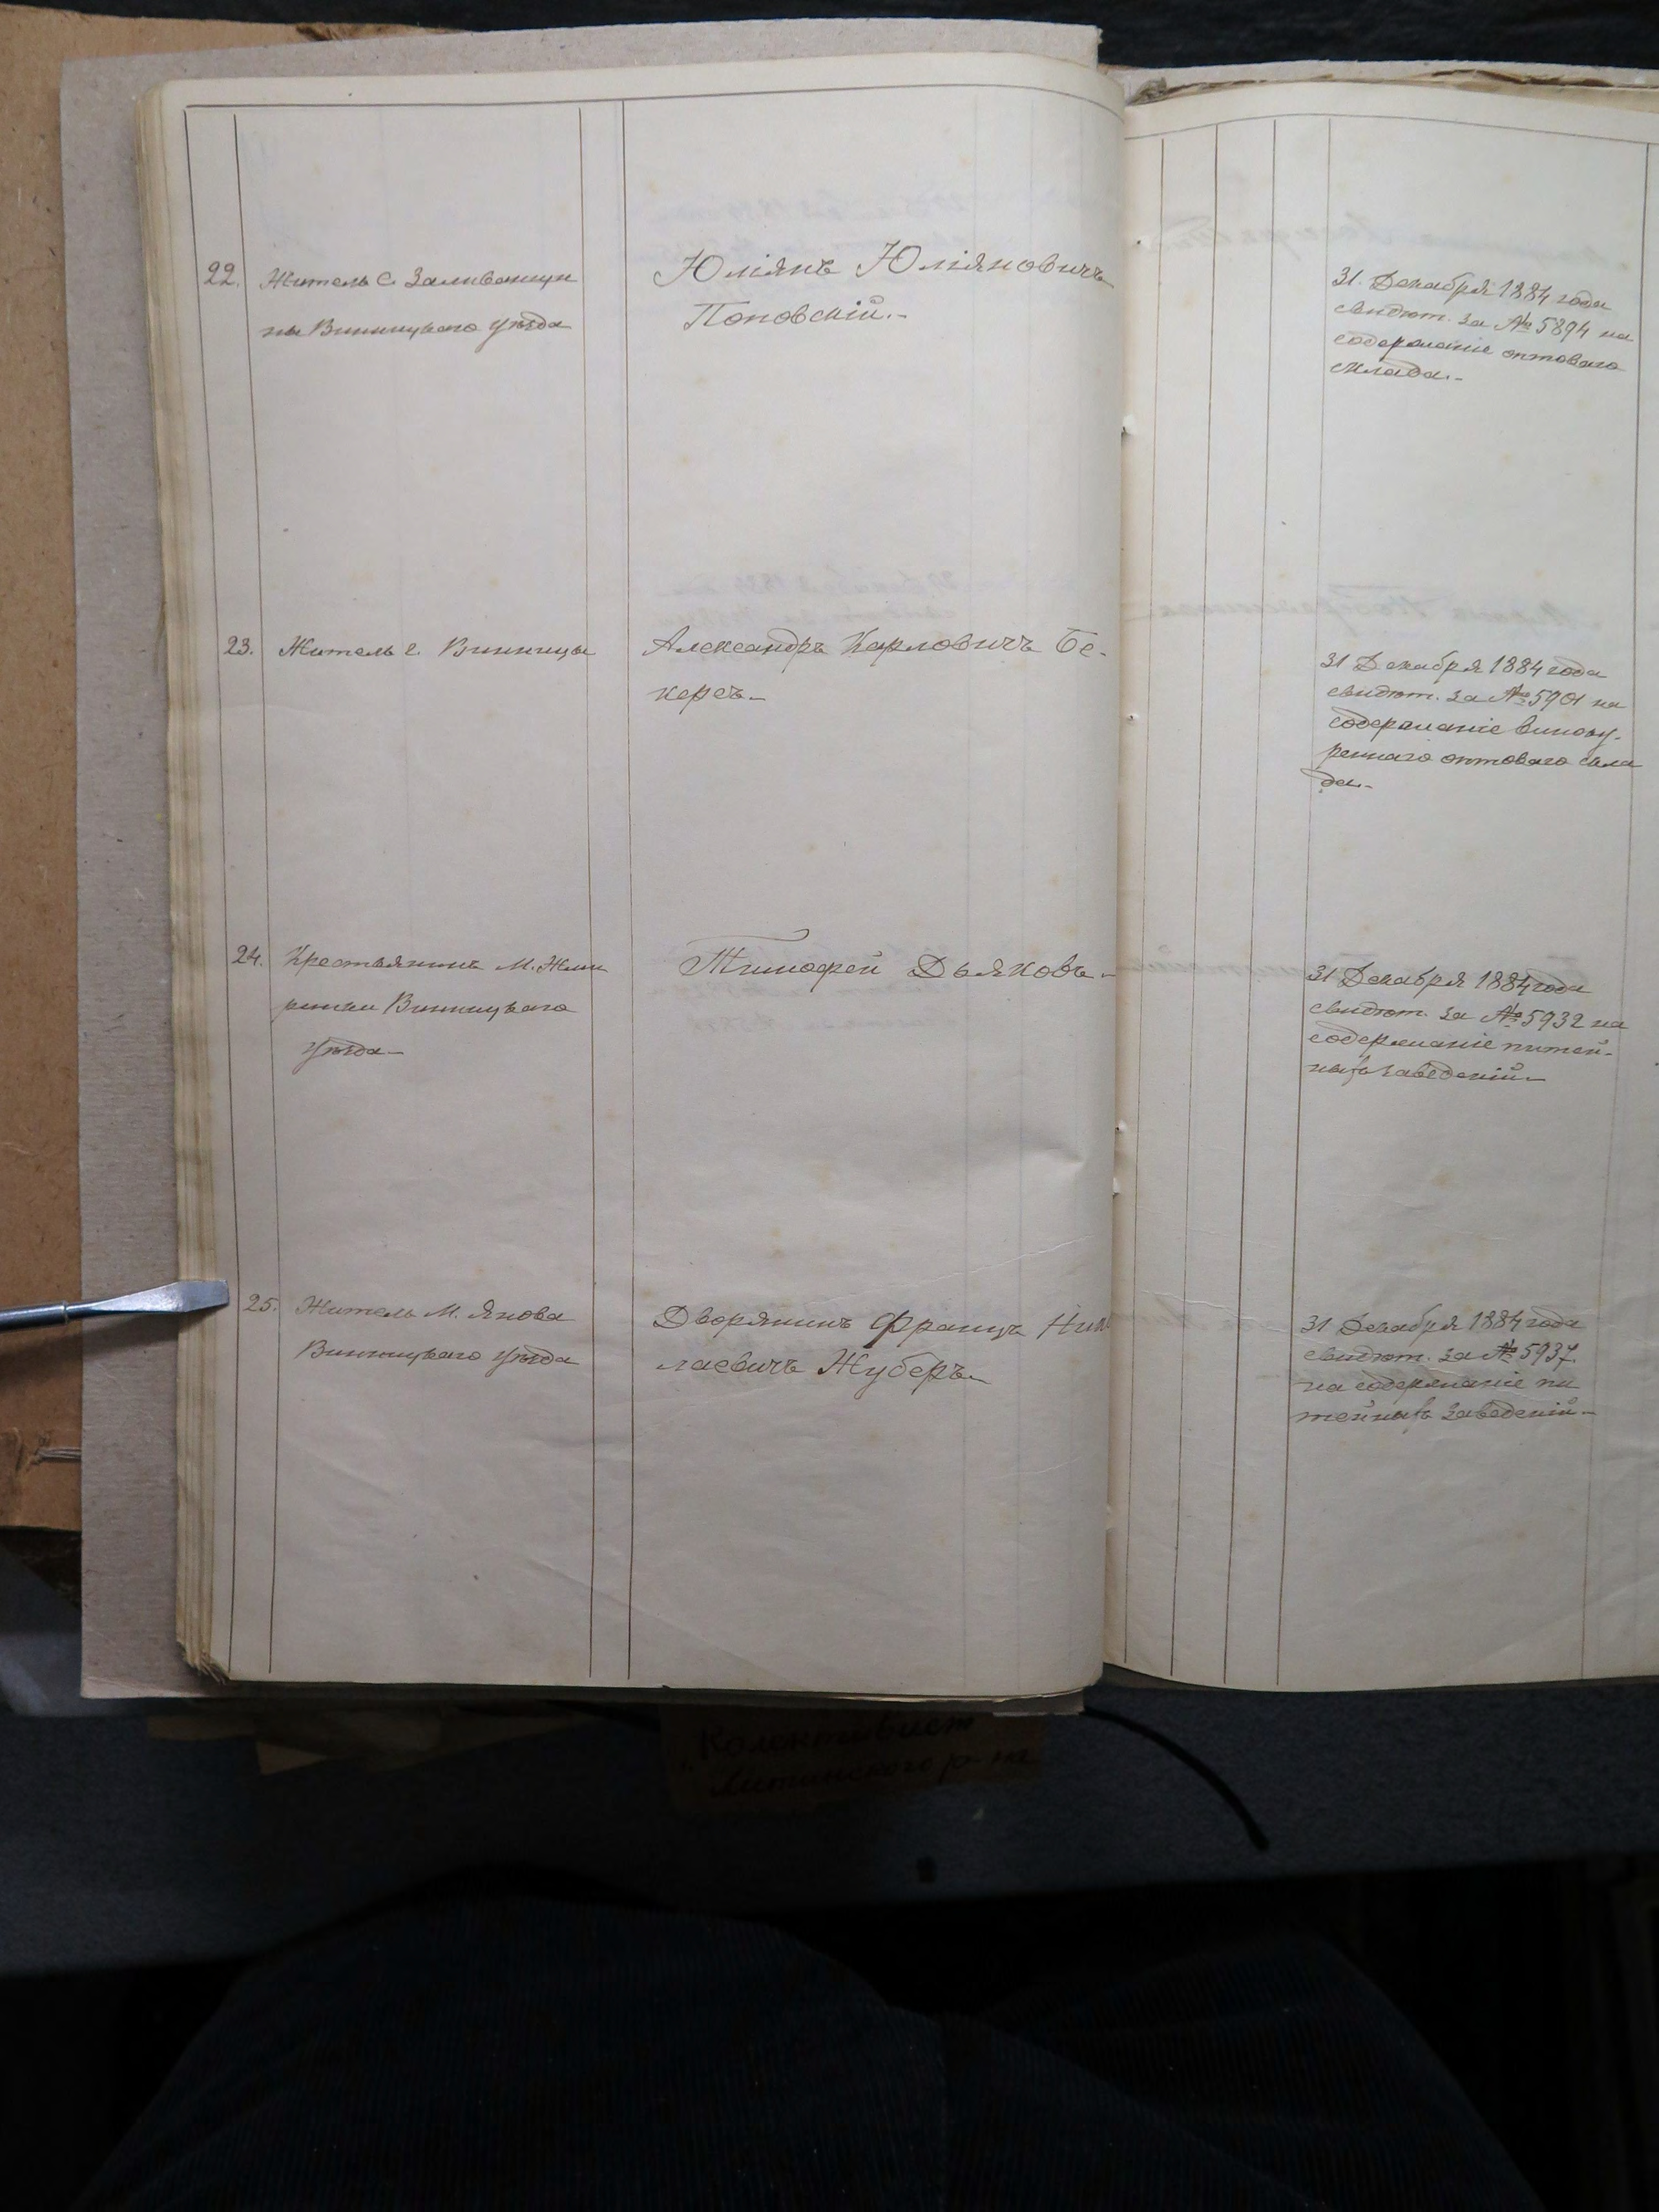 22.
Житель С. Заливанщи
ны Винницкаго уѣзда
Юліянъ Юліяновичъ
Поповскій.-
31. Декабря 1884 года
свидѣт. за № 5894 на
содержаніе оптоваго
склада.-
23.
Житель г. Винницы
Александръ Карловичъ Бе-
керсъ.-
31 Декабря 1884 года
свидѣт. за № 5901 на
содержаніе виноку-
реннаго оптоваго скла
да.-
24.
Крестьянинъ М. Жме
ринки Винницкаго
уѣзда-
Тимофей Дьяковъ.-
31 Декабря 1884 года
свидѣт. за № 5932 на
содержаніе питей-
ныхъ заведеній.-
25.
Житель М. Янова
Винницкаго уѣзда
Дворянинъ Францъ Нико
лаевичъ Жуберъ.-
31 Декабря 1884 года
свидѣт. за № 5937.
на содержаніе пи
тейныхъ заведеній.-
Колективист
Литинского р-на